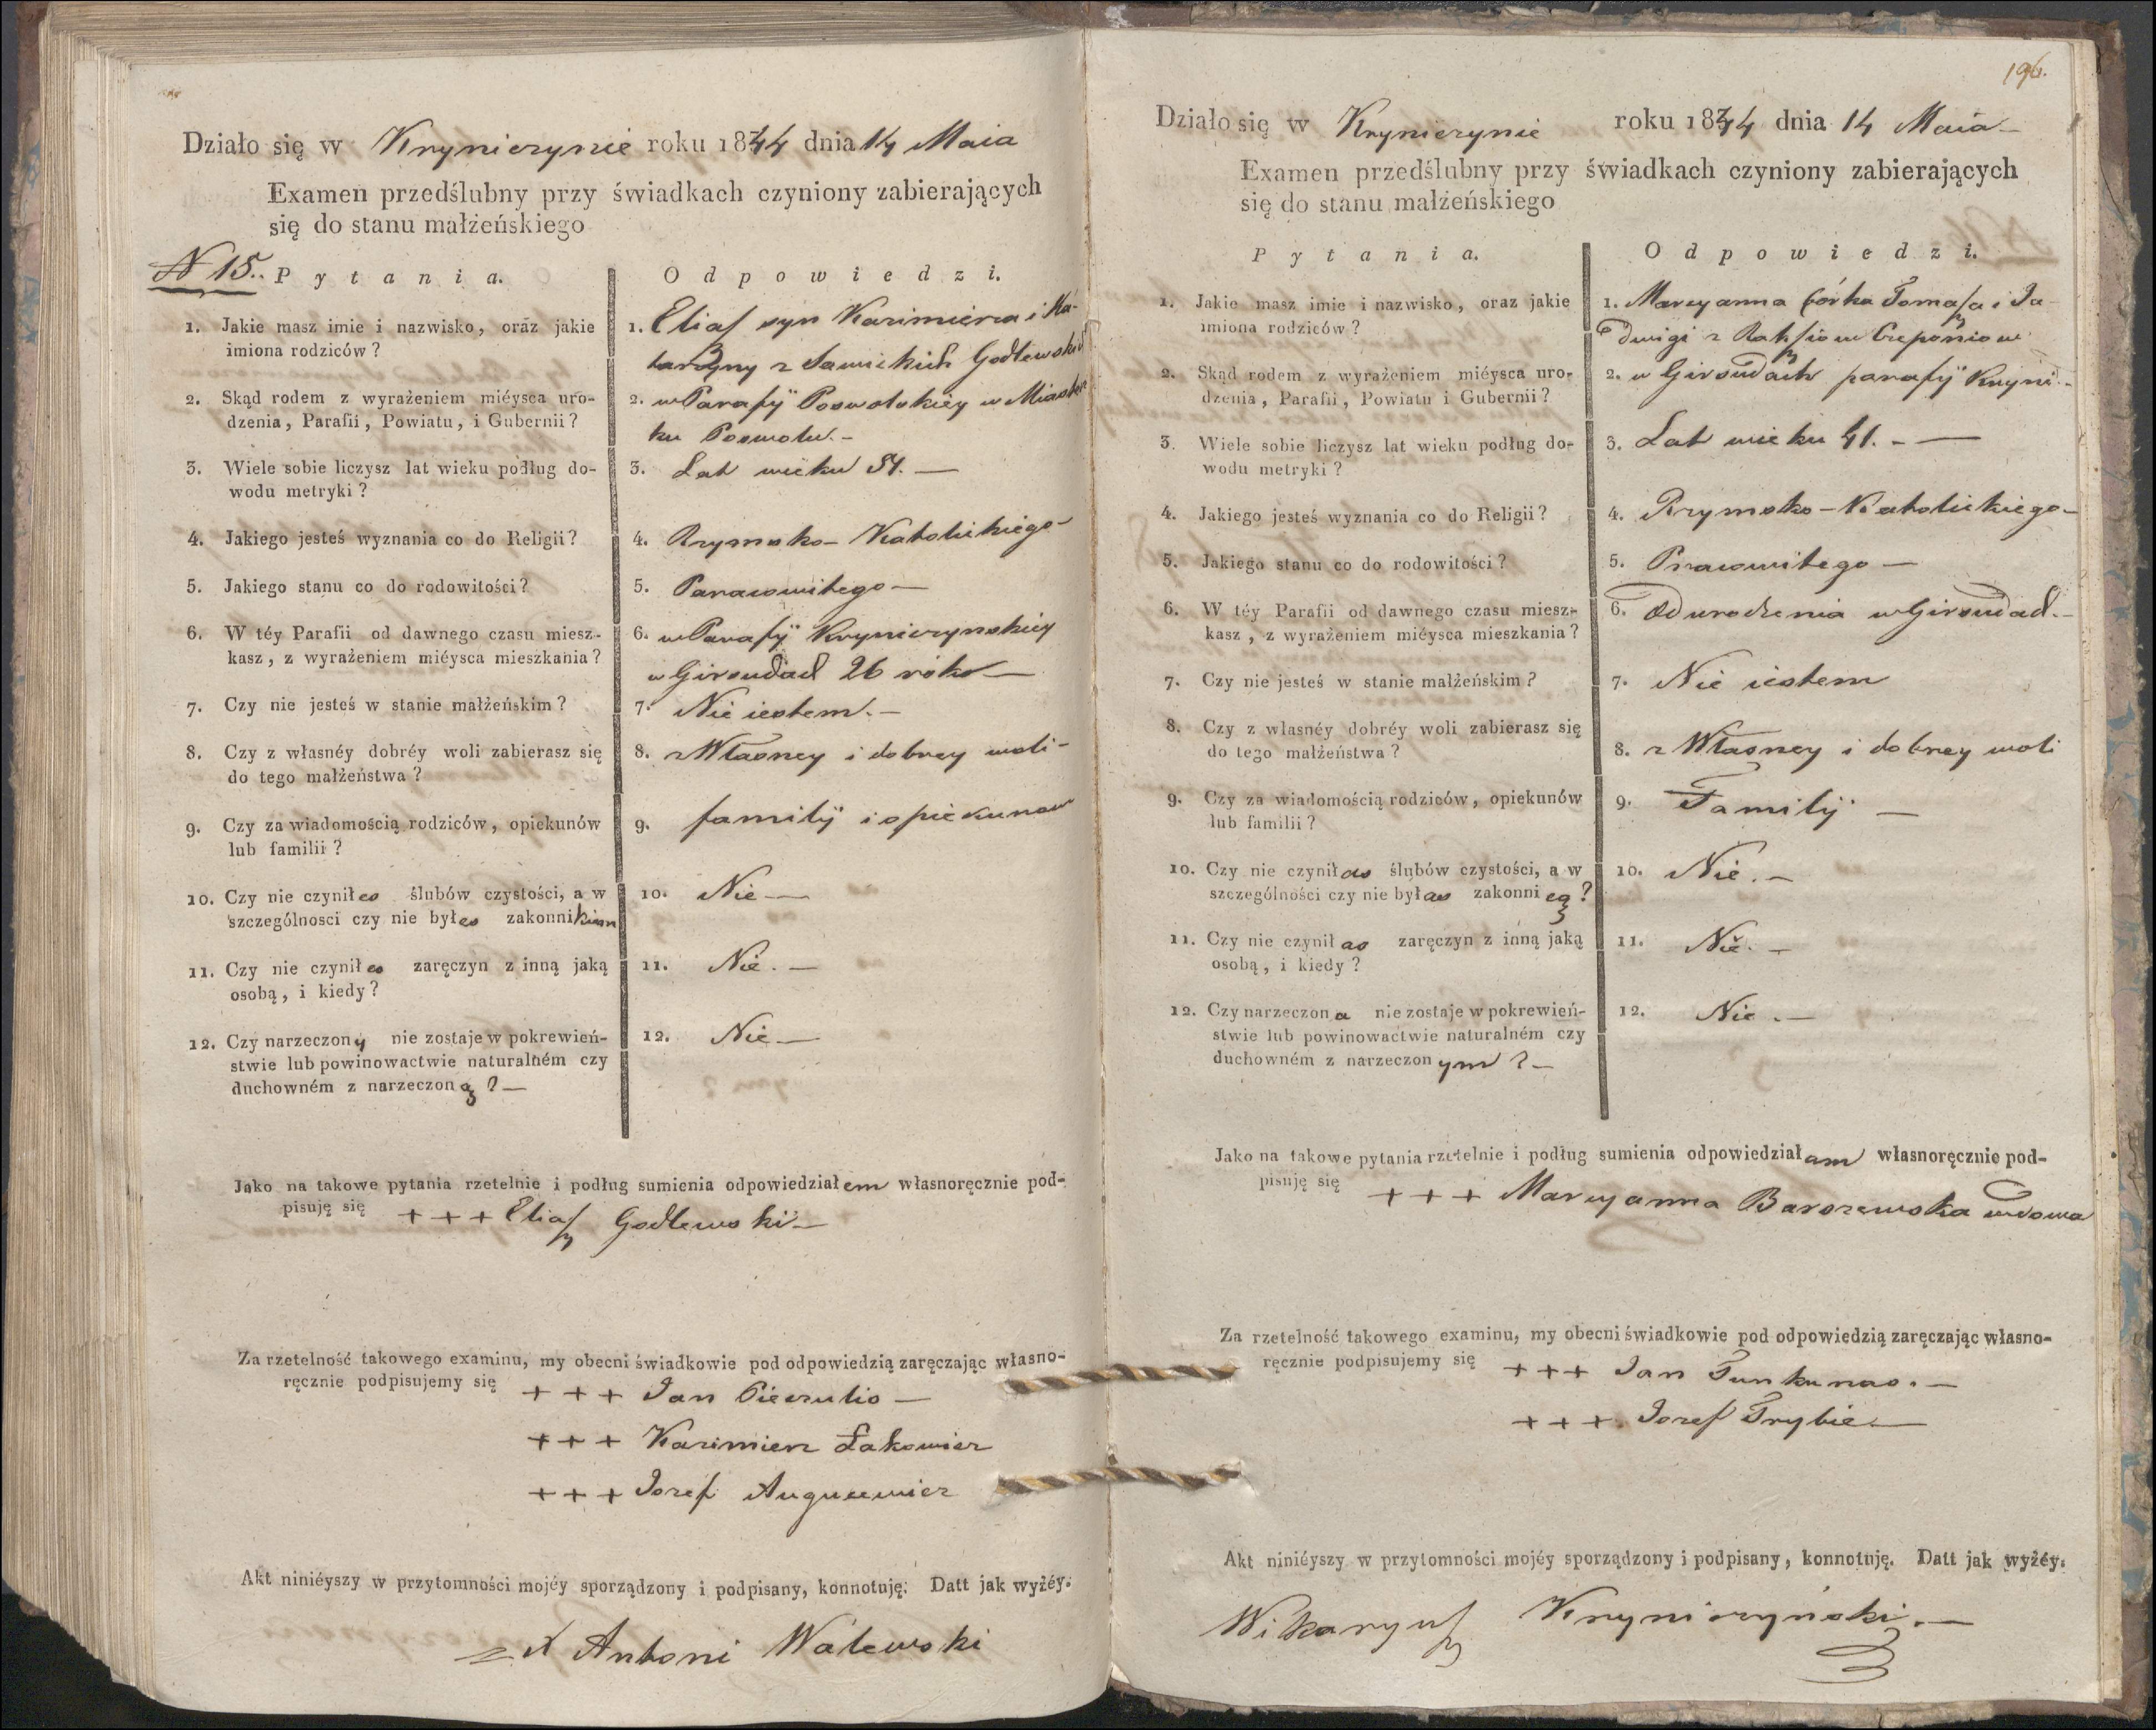 Działo się w Kryniczynie roku 1844 dnia 14 Maia
Examen przedślubny przy świadkach czyniony zabierających
się do stanu małżeńskiego
N 15. Pytania. Odpowiedzi.
1. Jakie masz imie i nazwisko, oraz jakie
imiona rodziców?
1. Eliasz syn Kazimierza i Ka-
tarzyny z Sawickich Godlewski
2. Skąd rodem z wyrażeniem miéysca uro-
dzenia, Parafii, Powiatu, i Gubernii?
2. w Parafij Poswolskiéy w Miastecz
ku Poswolu. -
3. Wiele sobie liczysz lat wieku podług do-
wodu metryki?
3. Lat wieku 51. —
4. Jakiego jesteś wyznania co do Religii?
4. Rzymsko- Katolickiego-
5. Jakiego stanu co do rodowitości?
5. Paracowitego —
6. W téy Parafii od dawnego czasu miesz-
kasz, z wyrażeniem miéysca mieszkania?
6. w Parafij Kryniczynskiéy
w Girsudach 26 roko —
7. Czy nie jesteś w stanie małżeńskim?
7. Nie iestem. -
8. Czy z własnéy dobréy woli zabierasz się
do tego małżeństwa?
8. z Własney i dobrey woli-
9. Czy za wiadomością rodziców, opiekunów
lub familii?
9. familij i opiekunow
10. Czy nie czyniłes ślubów czystości, a w
szczególnosci czy nie byłes zakonnikiem
10. Nie —
11. Czy nie czyniłes zaręczyn z inną jaką
osobą, i kiedy?
11. Nie. —
12. Czy narzeczony nie zostaje w pokrewień-
stwie lub powinowactwie naturalném czy
duchowném z narzeczoną? —
12. Nie —
Jako na takowe pytania rzetelnie i podług sumienia odpowiedziałem własnoręcznie pod-
pisuję się + + + Eliasz Godlewski —
Za rzetelność takowego examinu, my obecni świadkowie pod odpowiedzią zaręczając własno-
ręcznie podpisujemy się + + + Jan Pieczulis —
+ + + Kazimierz Łakowicz
+ + + Jozef Augucewicz
Akt niniéyszy w przytomności mojéy sporządzony i podpisany, konnotuję. Datt jak wyżéy.
X Antoni Walewski
196.
Działo się w Kryniezynie roku 1844 dnia 14 Maia —
Examen przedślubny przy świadkach czyniony zabierających
się do stanu małżeńskiego
Pytania. Odpowiedzi.
1. Jakie masz imie i nazwisko, oraz jakie
imiona rodziców?
1. Maryanna Córka Tomasza i Ja-
dwigi z Rakszow Czeponiow
2. Skąd rodem z wyrażeniem miéysca uro-
dzenia, Parafii, Powiatu i Gubernii?
2. w Girsudach parafij Kryni. -
3. Wiele sobie liczysz lat wieku podług do-
wodu metryki?
3. Lat wieku 41. - —
4. Jakiego jesteś wyznania co do Religii?
4. Rzymsko - Katolickiego -
5. Jakiego stanu co do rodowitości?
5. Pracowitego —
6. W téy Parafii od dawnego czasu miesz-
kasz, z wyrażeniem miéysca mieszkania?
6. Od urodzenia w Girsudach. -
7. Czy nie jesteś w stanie małżeńskim?
7. Nie iestem
8. Czy z własnéy dobréy woli zabierasz się
do tego małżeństwa?
8. z Własney i dobrey woli
9. Czy za wiadomością rodziców, opiekunów
lub familii?
9. Familij —
10. Czy nie czyniłas ślubów czystości, a w
szczególności czy nie byłas zakonnicą?
10. Nie. —
11. Czy nie czyniłas zaręczyn z inną jaką
osobą, i kiedy?
11. Nie. —
12. Czy narzeczona nie zostaje w pokrewień-
stwie lub powinowactwie naturalném czy
duchowném z narzeczonym? —
12. Nie. —
Jako na takowe pytania rzetelnie i podług sumienia odpowiedziałam własnoręcznie pod-
pisuję się + + + Maryanna Barszewska wdowa
Za rzetelność takowego examinu, my obecni świadkowie pod odpowiedzią zaręczając własno-
ręcznie podpisujemy się + + + Jan Tunkunas. —
+ + + Jozef Trybie —
Akt niniéyszy w przytomności mojéy sporządzony i podpisany, konnotuję. Datt jak wyżéy.
Wikaryusz Kryniczyński. —